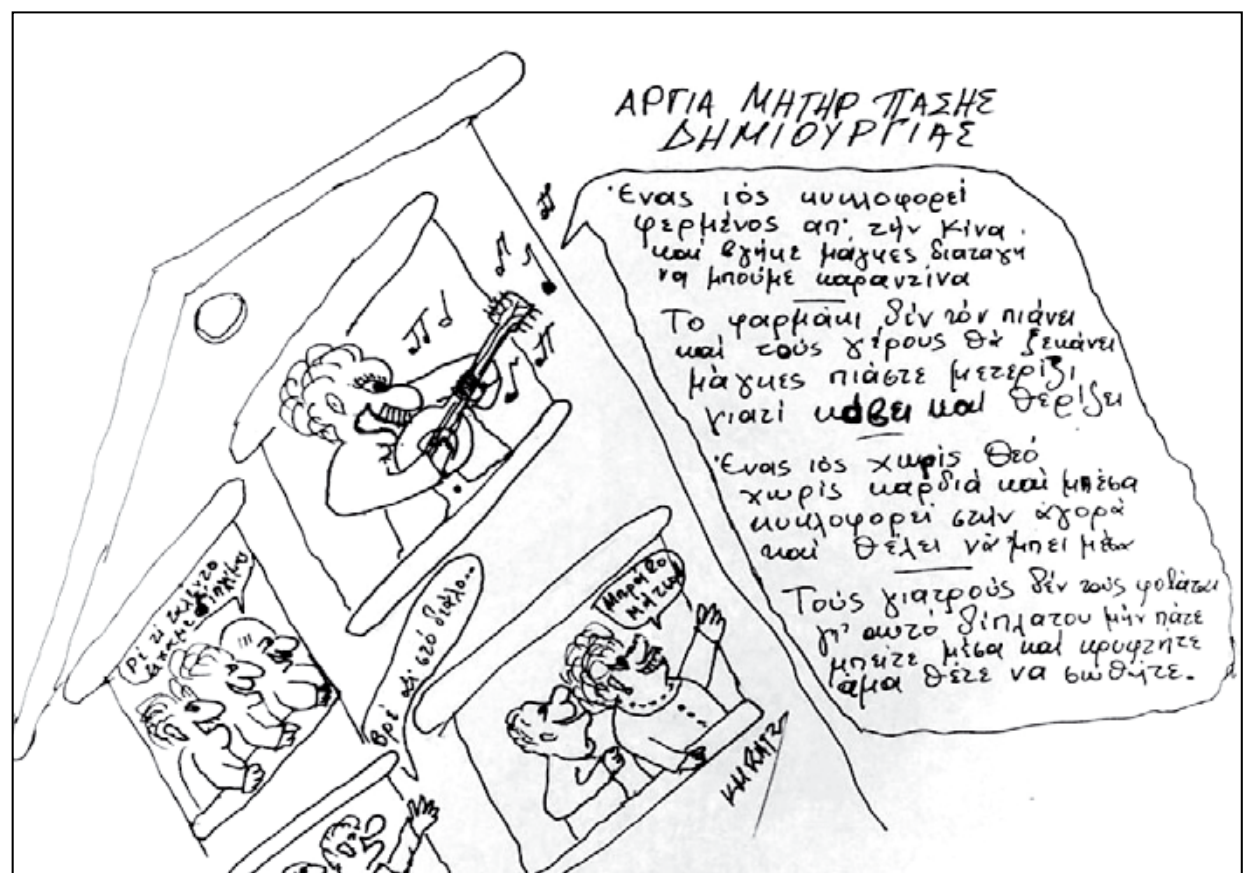 ΑΡΓΙΑ ΜΗΤΗΡ ΠΑΣΗΣ
ΔΗΜΙΟΥΡΓΙΑΣ
Ένας ιός κυκλοφορεί
φερμένος απ' την Κίνα
και βγήκε μάγκες διαταγή
να μπούμε καραντίνα
Το φαρμάκι δέν τόν πιάνει
και τούς γέρους θά ξεκάνει
μάγκες πιάστε μετερίζι
γιατί κόβει και θερίζει
Ένας ιός χωρίς θεό
χωρίς καρδιά και μπέσα
κυκλοφορεί στην αγορά
και θέλει νά μπει μέσα
Τούς γιατρούς δέν τούς φοβάται
γι' αυτό δίπλα του μήν πάτε
μπείτε μέσα και κρυφτήτε
άμα θέτε να σωθήτε.
Ρέ τί ταλέντο
είχαμε δίπλα μας
Βρέ άει στό διάλο...
Μπράβο